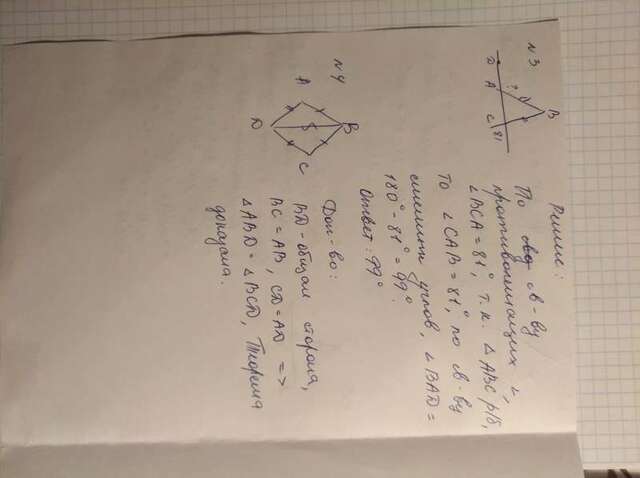 N 3
D
A
?
B
C
81
Решение:
По св-ву
противолежащих ∠,
∠BCA = 81°, т.к. △ABC р/б,
то ∠CAB = 81°, по св-ву
смежных углов, ∠BAD =
180° - 81° = 99°.
Ответ: 99°
N 4
A
B
D
C
Док-во:
BD - общая сторона,
BC = AB, CD = AD =>
△ABD = △BCD, Теорема
доказана.